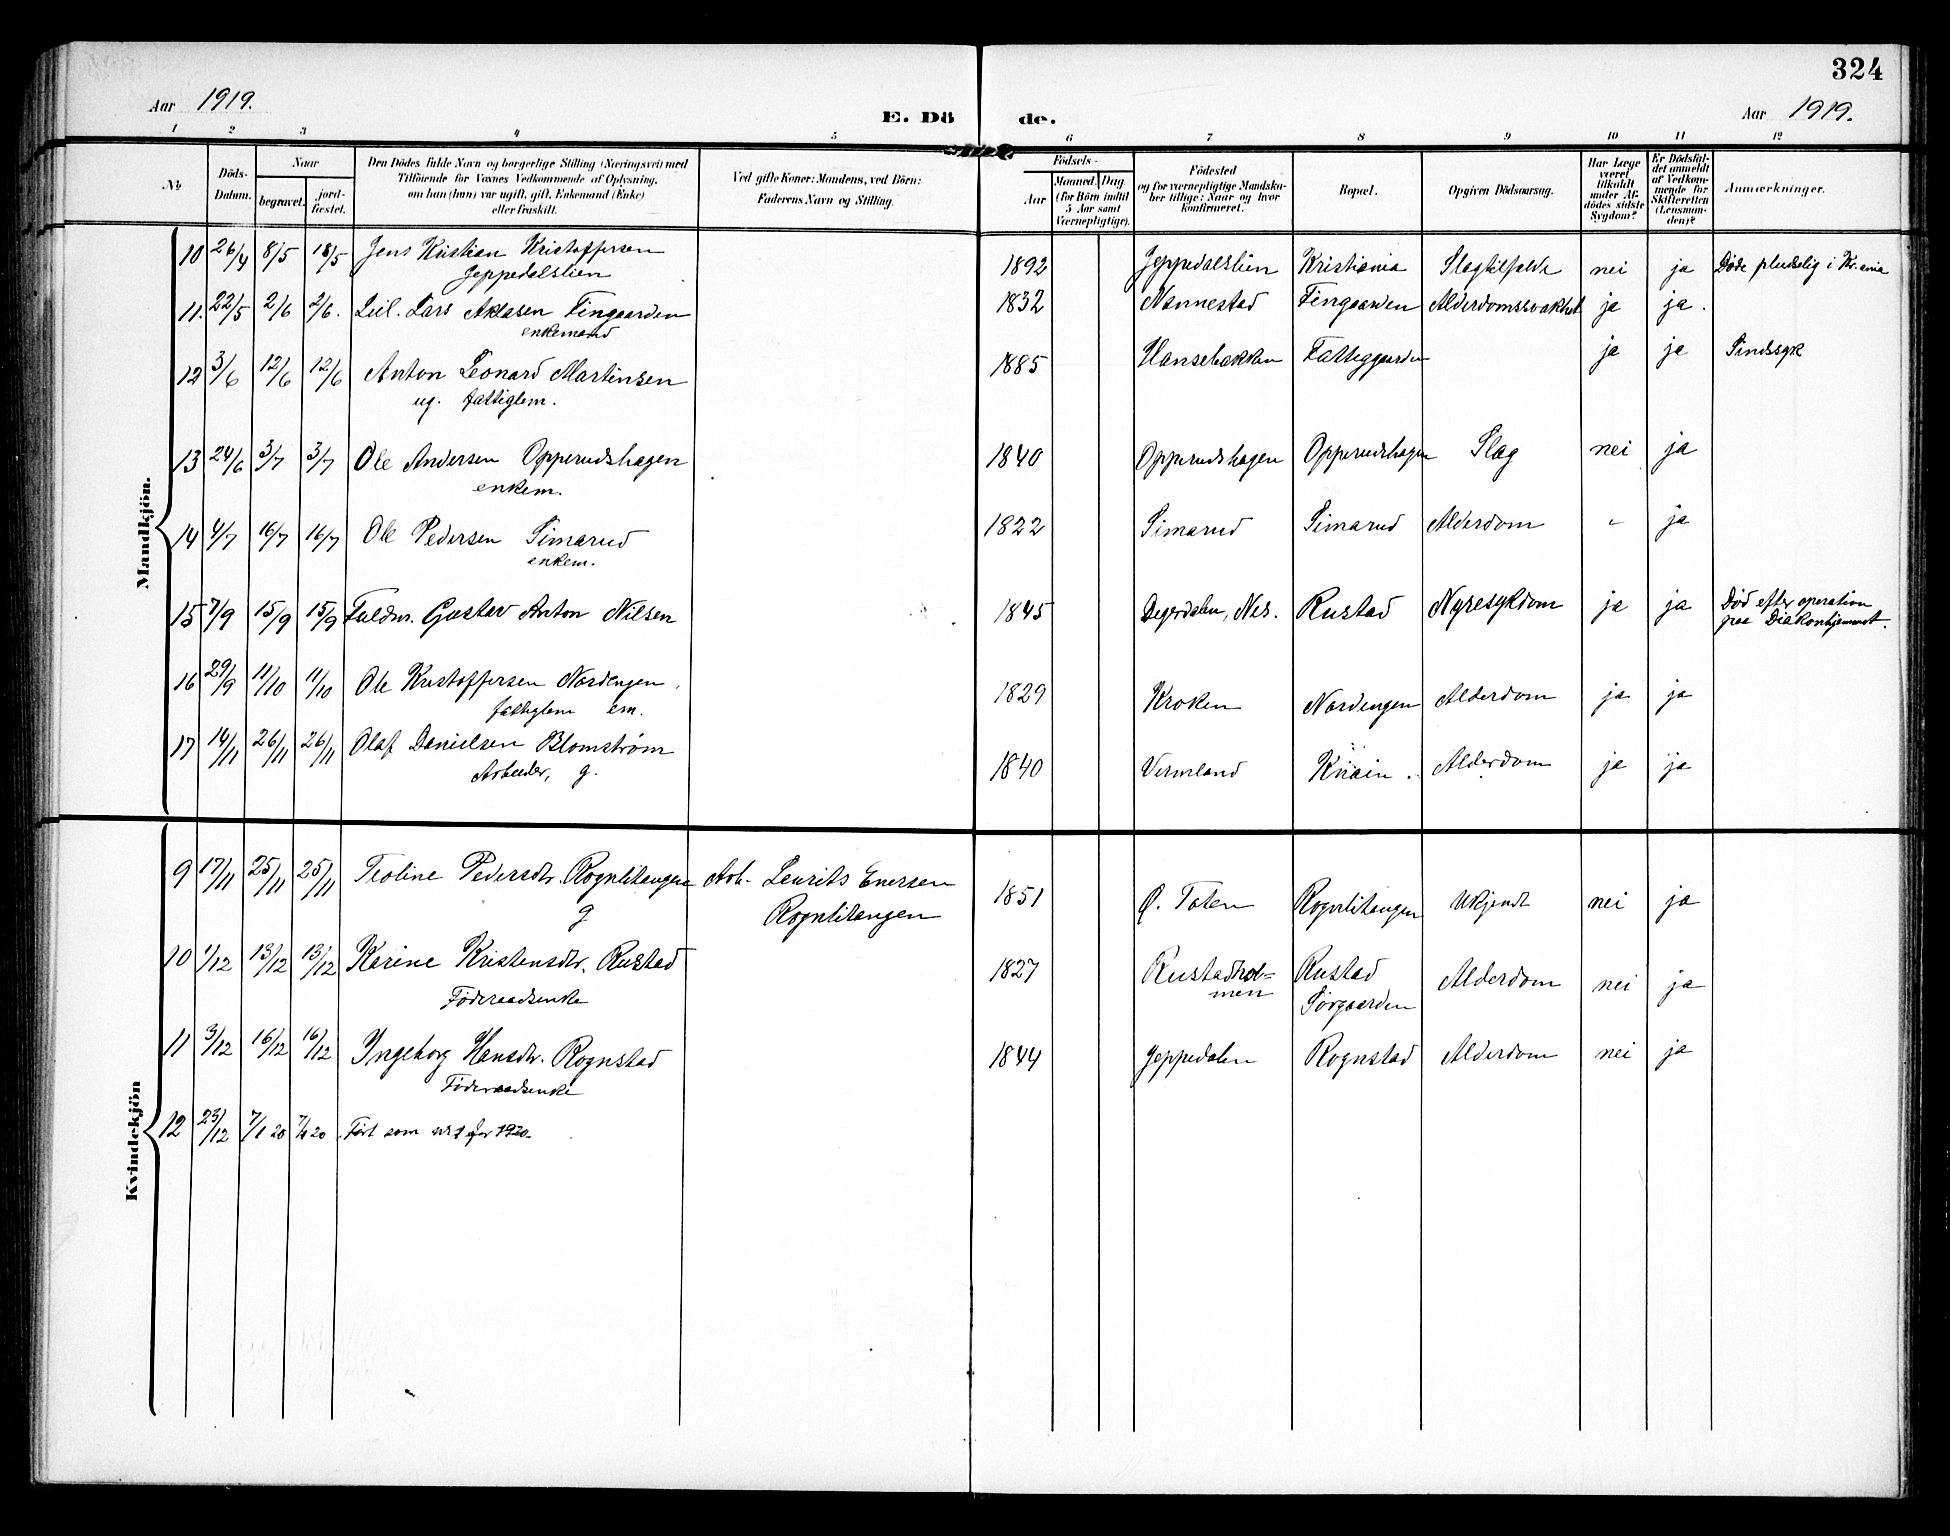 324
Aar 1919.
E. Dö de.
Aar 1919.
1 2 3 4 5 6 7 8 9 10 11 12
No
Döds-Datum.
Naar
begravet.
jord-fæstet.
Den Dödes fulde Navn og borgerlige Stilling (Næringsvei) med
Tilföiende for Voxnes Vedkommende af Oplysning,
om han (hun) var ugift, gift, Enkemand (Enke)
eller fraskilt.
Ved gifte Koner: Mandens, ved Börn:
Faderens Navn og Stilling.
Födsels-
Aar
Maaned. Dag.
(for Börn indtil
5 Aar samt
Værnepligtige).
Födested
og for værnepligtige Mandska-
ber tillige: Naar og hvor
konfirmeret.
Bopæl.
Opgiven Dödsaarsag.
Har Læge
været
tilkaldt
under Af-
dödes sidste
Sygdom?
Er Dödsfal-
det anmeldt
af Vedkom-
mende for
Skifteretten
(Lensman-
den)?
Anmærkninger.
Mandkjön.
10 26/4 8/5 18/5 Jens Kristian Kristoffersen 1892 Jeppedalslien Kristiania Slagtilfælde nei ja Døde pludselig i Kr.ania
Jeppedalslien
11. 22/5 2/6 2/6. Lars Aklasen Fingaarden 1832 Nannestad Fingaarden Alderdomssvakhet ja ja.
enkemand
12 3/6 12/6 12/6 Anton Leonard Martinsen 1885 Hansebakken Fattiggaarden ja ja Sindssyk
ug. fattiglem.
13 24/6 3/7 3/7 Ole Andersen Opperudshagen 1840 Opperudshagen Opperudshagen Slag nei ja
enkem.
14 4/7 16/7 16/7 Ole Pedersen Simarud 1822 Simarud Simarud Alderdom - ja
enkem.
15 7/9 15/9 15/9 Fuldm. Gustav Anton Nilsen 1845 Degerdalen, Nes. Rustad Nyresykdom ja ja Død efter operation
paa Diakonhjemmet.
16 29/9 11/10 11/10 Ole Kristoffersen Nordengen 1829 Kroken Nordengen Alderdom ja ja
fattiglem em.
17 14/11 26/11 26/11 Olaf Danielsen Blomstrøm 1840 Vermland Knain. Alderdom ja ja
Arbeider, g.
Kvindekjön
9 17/11 25/11 25/11 Teoline Pedersdtr. Rognlitangen Arb. Laurits Enersen 1851 Ø. Toten Rognlitangen Ukjendt nei ja
g Rognlitangen
10 1/12 13/12 13/12 Karine Kristensdtr. Rustad 1827 Rustadhol- Rustad Alderdom nei ja
Føderaadsenke men Sørgaarden
11 3/12 16/12 16/12 Ingeborg Hansdtr. Rognstad 1844 Jeppedalen Rognstad Alderdom nei ja
Føderaadsenke
12 23/12 7/1 20 7/1 20 Ført som nr 1 for 1920.